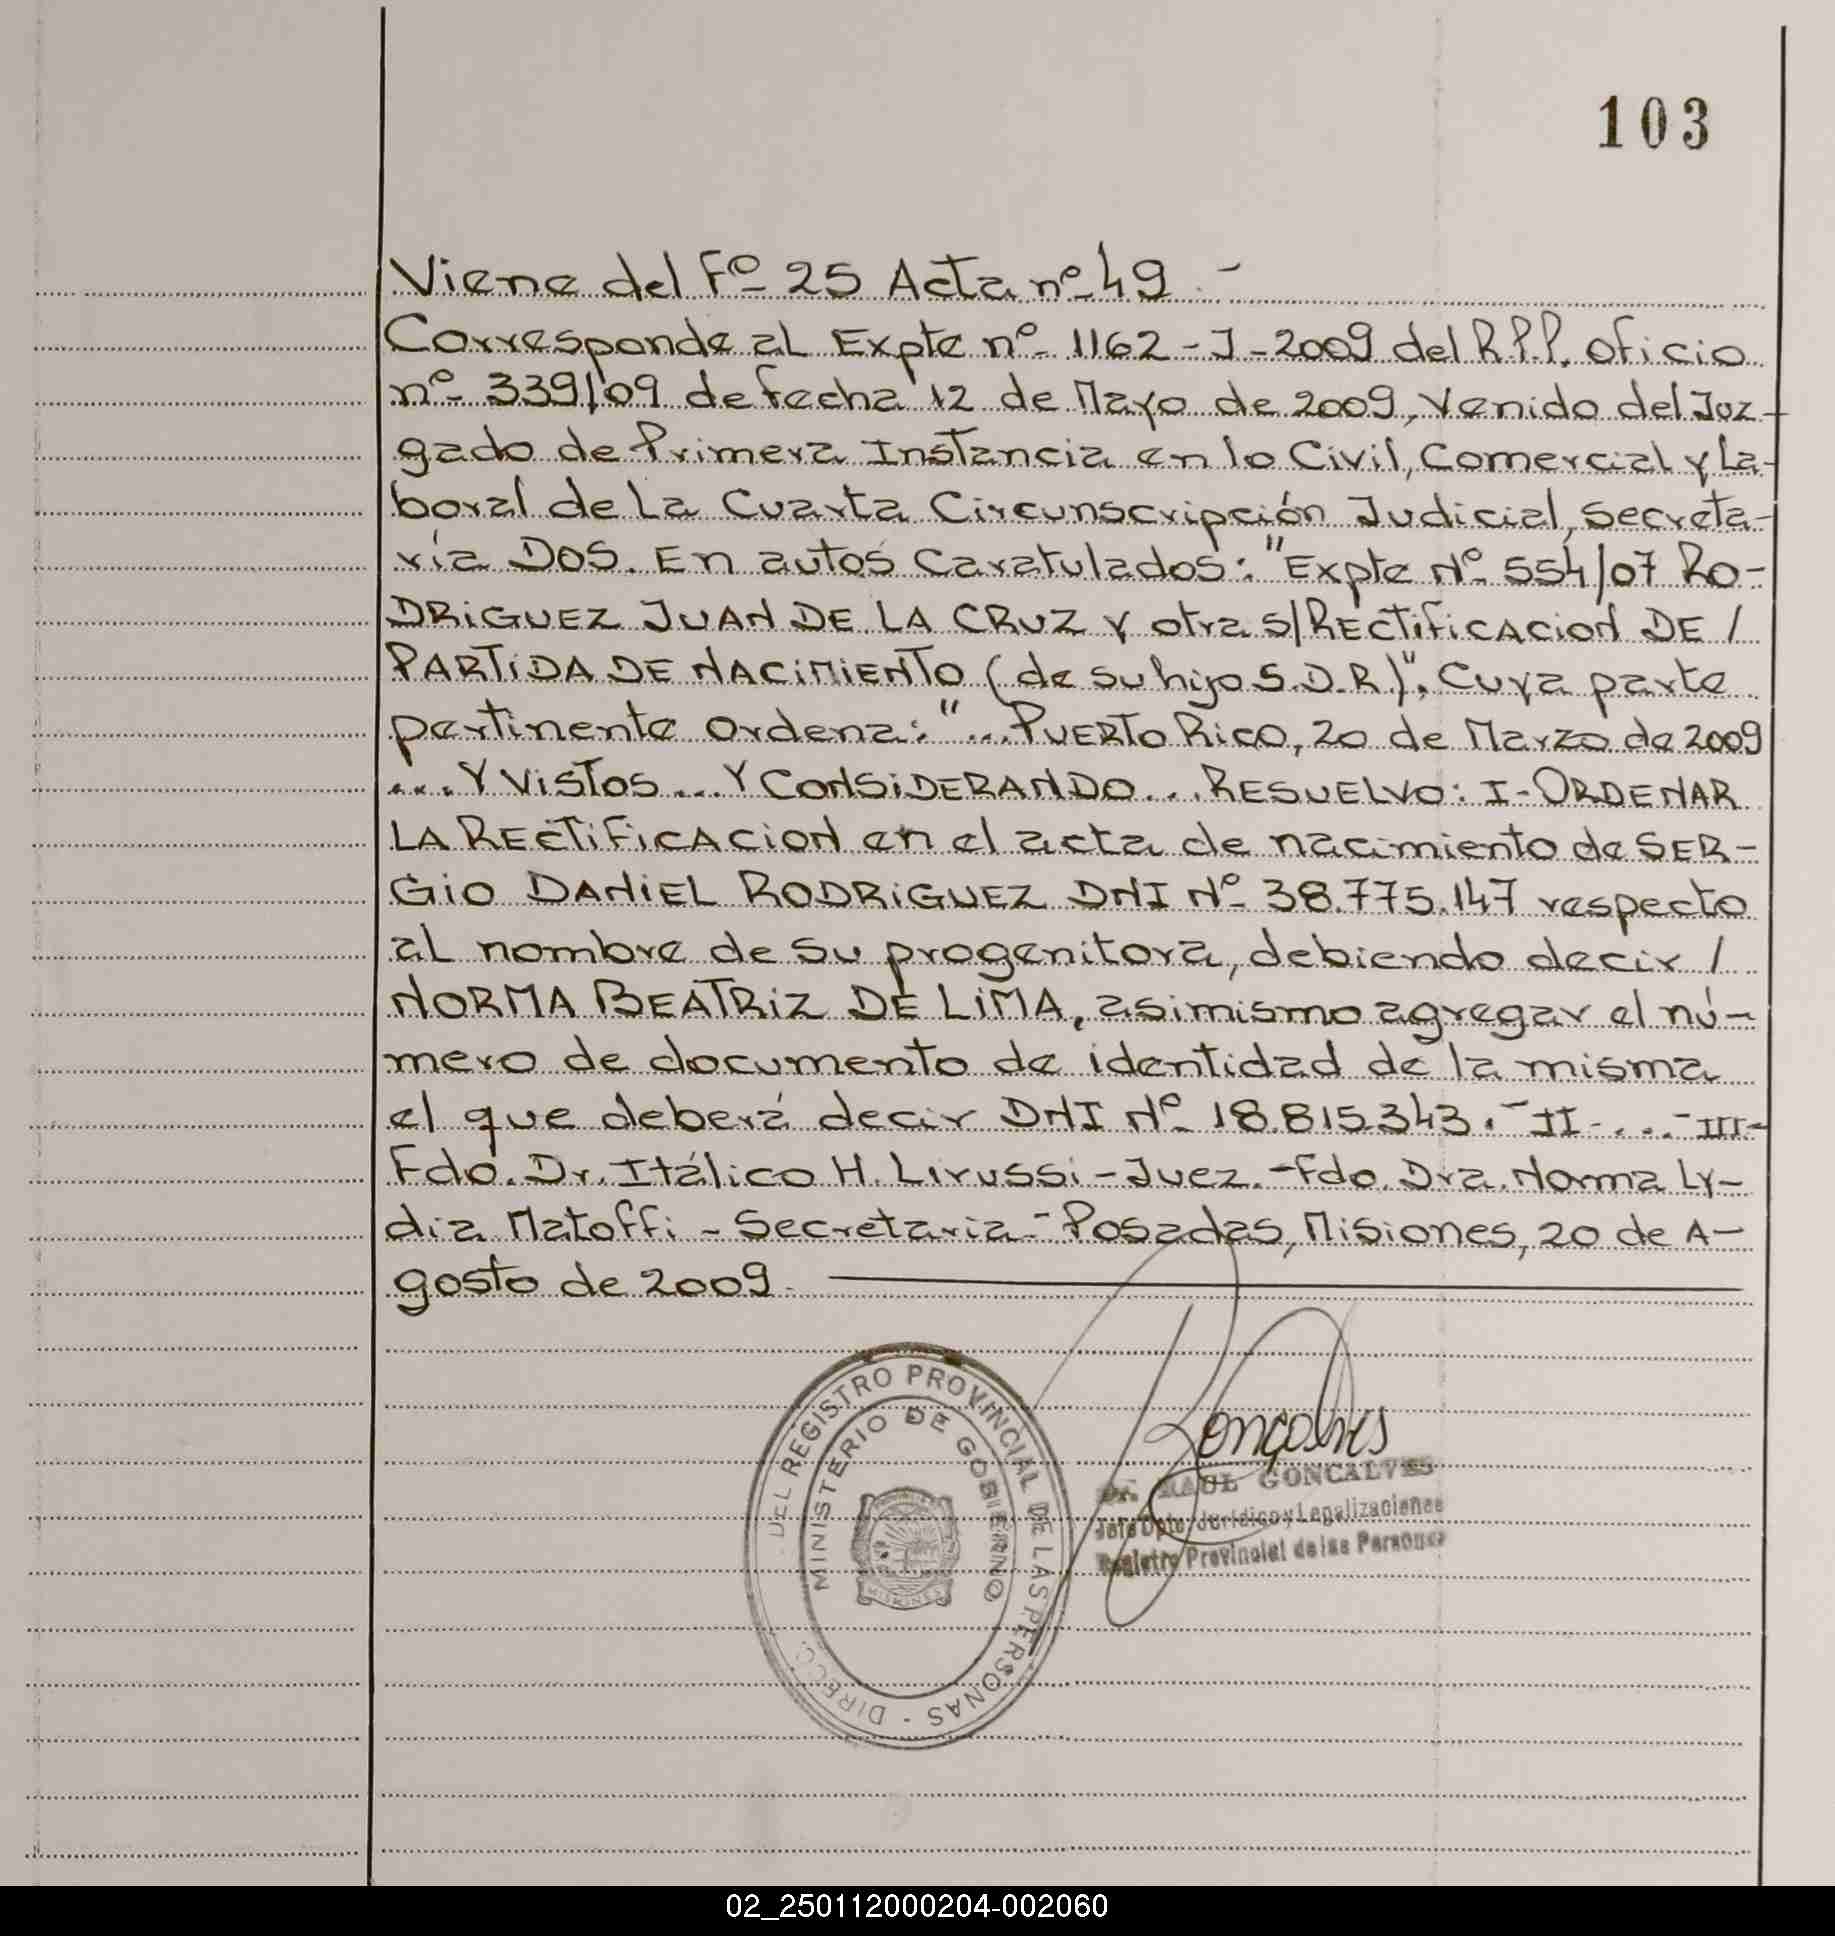 103
Viene del Fº 25 Acta nº 49 -
Corresponde al Expte nº 1162-J-2009 del R.P.P. oficio
nº 339/09 de fecha 12 de Mayo de 2009, Venido del Juz-
gado de Primera Instancia en lo Civil, Comercial y La-
boral de La Cuarta Circunscripción Judicial, Secreta-
ría DOS. En autos Caratulados: "Expte Nº 554/07 RO-
DRIGUEZ JUAN DE LA CRUZ y otra s/RECTIFICACION DE /
PARTIDA DE NACIMIENTO (de su hijo S.D.R.)". Cuya parte
pertinente Ordena: "... PUERTO RICO, 20 de Marzo de 2009
.... Y VISTOS .... Y CONSIDERANDO ... RESUELVO: I- ORDENAR
LA RECTIFICACION en el acta de nacimiento de SER-
GIO DANIEL RODRIGUEZ DNI Nº 38.775.147 respecto
al nombre de su progenitora, debiendo decir /
NORMA BEATRIZ DE LIMA, asimismo agregar el nú-
mero de documento de identidad de la misma
el que deberá decir DNI Nº 18.815.343.- II- ... - III-
Fdo. Dr. Itálico H. Lirussi - Juez. - Fdo. Dra. Norma Ly-
dia Matoffi - Secretaria - Posadas, Misiones, 20 de A-
gosto de 2009.
DIRECC. DEL REGISTRO PROVINCIAL DE LAS PERSONAS -
MINISTERIO DE GOBIERNO
MISIONES
Gonçalves
Dr. RAUL GONCALVES
Jefe Dpto. Jurídico y Legalizaciones
Registro Provincial de las Personas
02_250112000204-002060